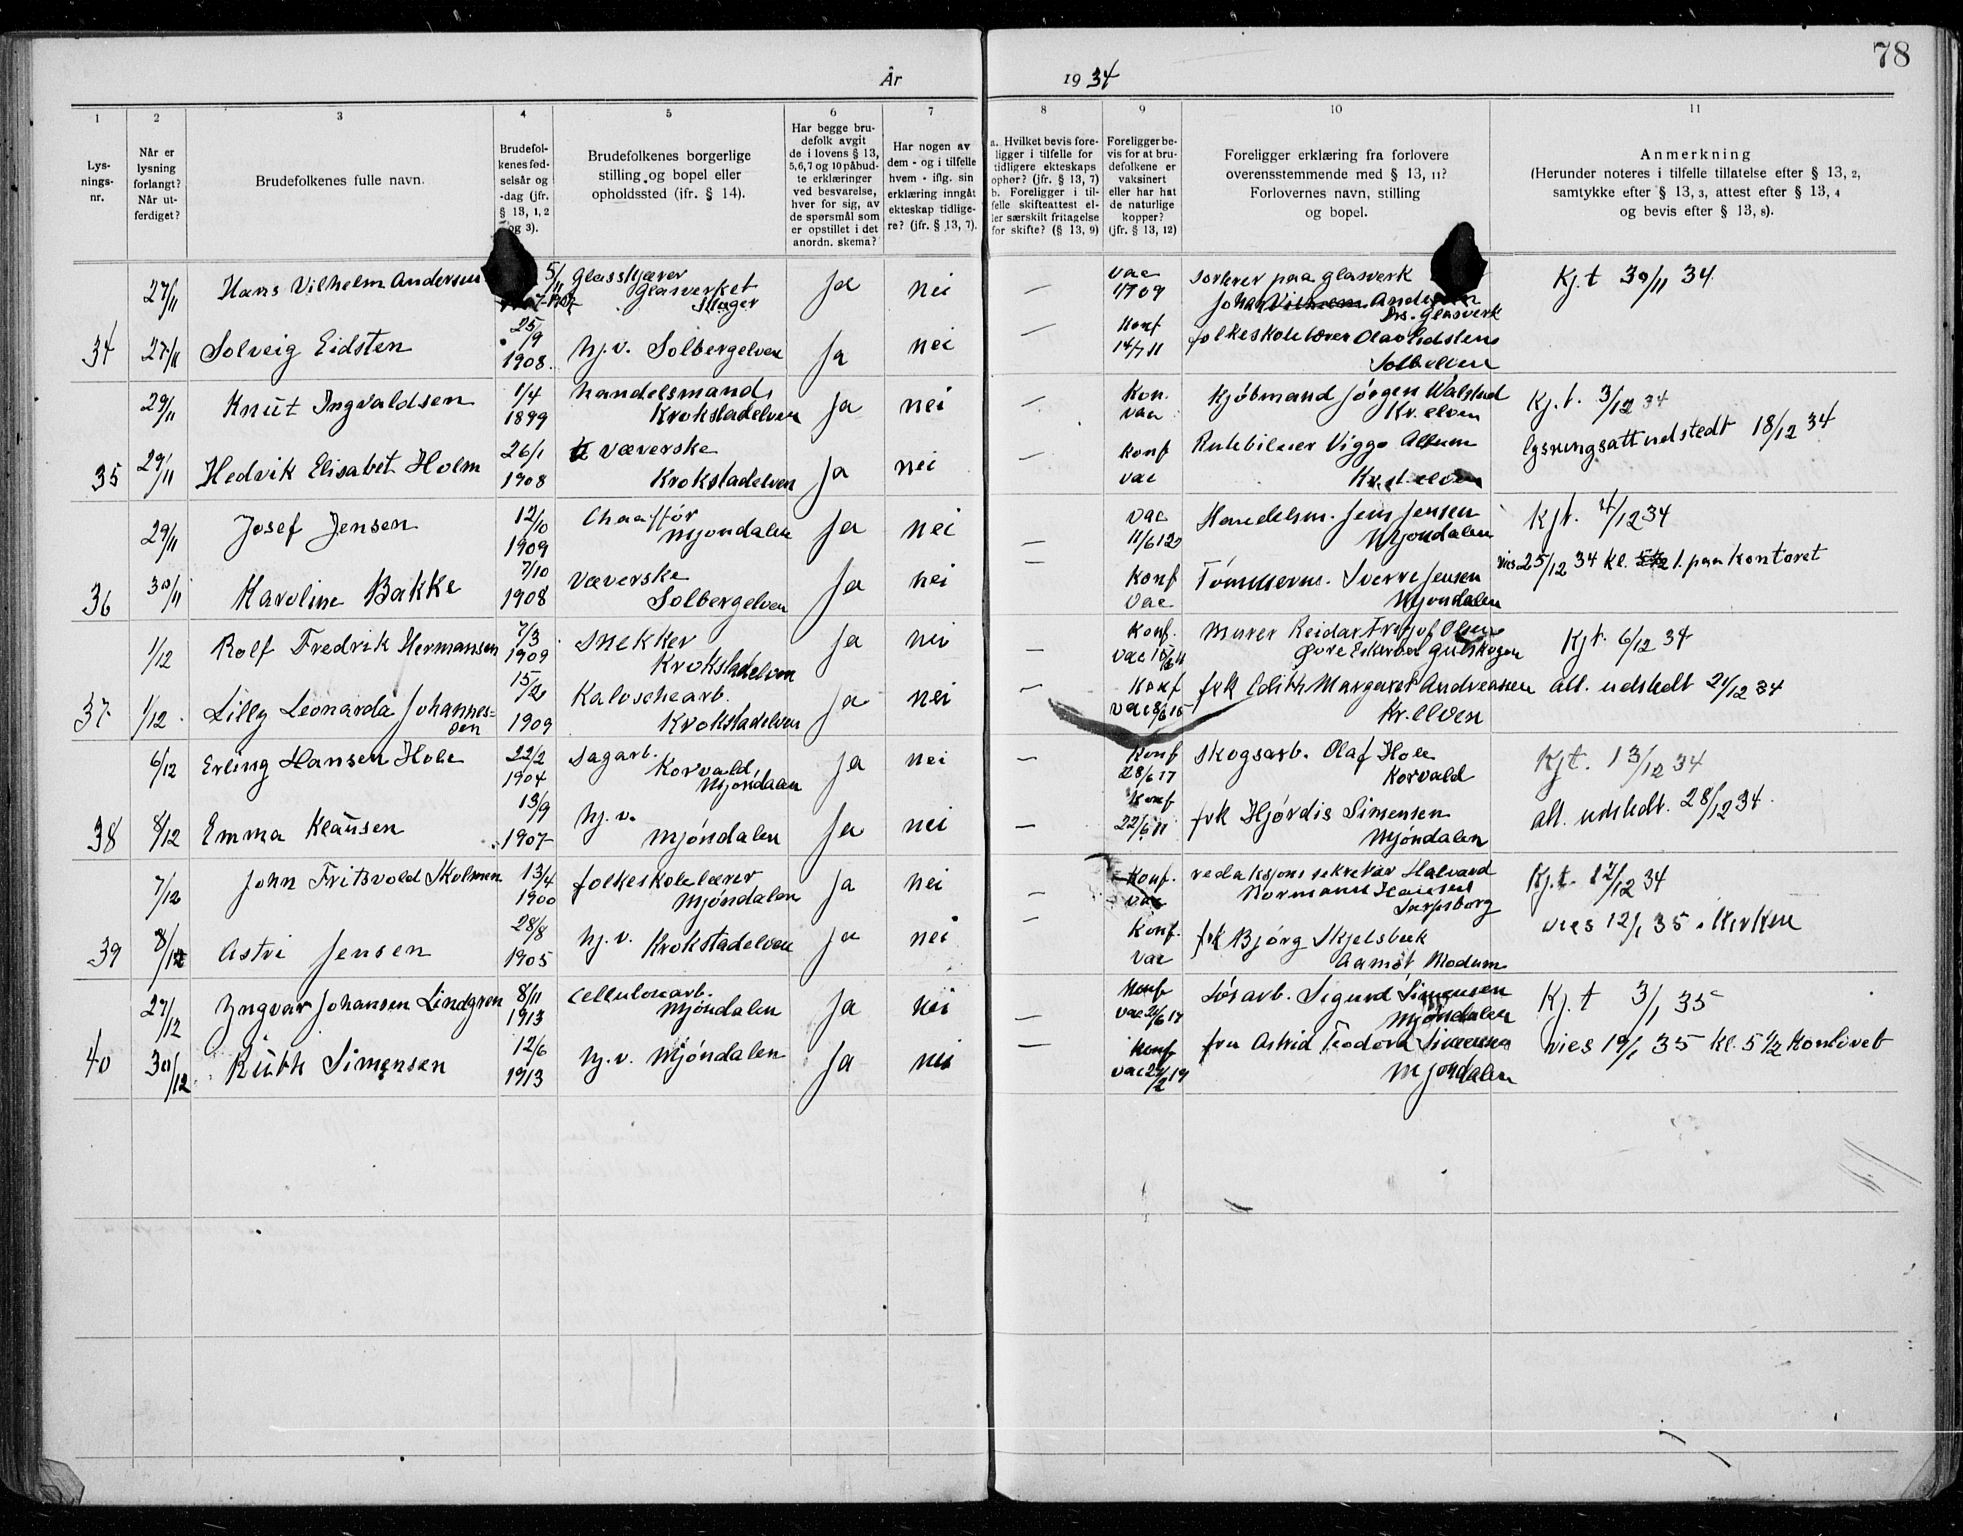 78
År 1934
1 2 3 4 5 6 7 8 9 10 11
Lys-
nings-
nr.
Når er
lysning
forlangt?
Når ut-
ferdiget?
Brudefolkenes fulle navn.
Brudefol-
kenes fød-
selsår og
-dag (jfr.
§ 13, 1, 2
og 3).
Brudefolkenes borgerlige
stilling og bopel eller
opholdssted (ifr. § 14).
Har begge bru-
defolk avgit
de i lovens § 13,
5,6,7 og 10 påbud-
te erklæringer
ved besvarelse,
hver for sig, av
de spørsmål som
er opstillet i det
anordn. skema?
Har nogen av
dem - og i tilfelle
hvem - iflg. sin
erklæring inngåt
ekteskap tidlige-
re? (jfr. § 13, 7).
a. Hvilket bevis fore-
ligger i tilfelle for
tidligere ekteskaps
ophør? (jfr. § 13, 7)
b. Foreligger i til-
felle skifteattest el-
ler særskilt fritagelse
for skifte? (§ 13, 9)
Foreligger be-
vis for at bru-
defolkene er
vaksinert
eller har hat
de naturlige
kopper?
(jfr. § 13, 12)
Foreligger erklæring fra forlovere
overensstemmende med § 13, 11?
Forlovernes navn, stilling
og bopel.
Anmerkning
(Herunder noteres i tilfelle tillatelse efter § 13, 2,
samtykke efter § 13, 3, attest efter § 13, 4
og bevis efter § 13, 8).
27/11 Hans Vilhelm Andersen 5/11 Glasskjærer ja nei — vac Sorterer paa glasverk Kj.t 30/11 34
Glasverket 1909 Johan Vilhelm Andersen
Skager Drs. Glasverk
34 27/11 Solveig Eidsten 25/9 1908. hj.v. Solbergelven ja nei — Konf 14/7 11 folkeskolelærer Olav Eidsten
Solbelven
29/11 Knut Ingvaldsen 1/4 1899 handelsmand Krokstadelven ja nei — Kon. vac Kjøbmand Jørgen Walstad Kj.t. 3/12 34
Kr.elven
35 29/11 Hedvik Elisabet Holm 26/1 1908 væverske Krokstadelven ja nei — Konf vac Rutebileier Viggo Album lysningsatt udstedt 18/12 34
Kr.st elven
29/11 Josef Jensen 12/10 1909 Chauffør Mjøndalen ja nei — vac 11/6 12 Handelsm. Jens Jensen Kjt. 4/12 34
Mjøndalen
36 30/11 Karoline Bakke 7/10 1908 Væverske Solbergelven ja nei — Konf vac Tømmerm. Sverre Jensen vies 25/12 34 kl. 1. paa Kontoret
Mjøndalen
1/12 Rolf Fredrik Hermansen 7/3 1909 Snekker Krokstadelven ja nei — Konf. Murer Reidar Fritjof Olsen Kjt. 6/12 34
vac Øvre Eikervei Gulskogen
37 1/12. Lilly Leonarda Johannes= 15/2 1909 Kaloschearb. ja nei — Konf frk Edith Margaret Andreassen att. udstedt 21/12 34
sen Krokstadelven vac 8/6 15 Kr.elven
6/12 Erling Hansen Hole 22/2 1904 Sagarb. Korvald, Mjøndalen ja nei — Konf 28/6 17 Skogsarb. Olaf Hole Kjt. 13/12 34
Korvald
38 8/12 Emma Klausen 13/9 1907 hj.v. Mjøndalen ja nei — Konf 22/6 11 frk Hjørdis Simensen att. udstedt. 28/12 34.
Mjøndalen
7/12 John Fritsvold Skolmen 13/4 1900 folkeskolelærer Mjøndalen ja nei — Konf. vac redaksjonssekretær Halvard Kj.t. 12/12 34
Normann Hansen
Sarpsborg
39 8/12 Astri Jensen 28/8 1905 hj.v. Krokstadelven ja nei — Konf. vac frk Bjørg Skjelsbæk vies 12/1 35 i Kirken
Aamot Modum
27/12 Yngvar Johansen Lindgren 8/11 1913 Cellulosearb. Mjøndalen ja nei — Konf Løsarb. Sigurd Simensen Kj.t 3/1 35
Mjøndalen
40 30/12 Ruth Simensen 12/6 1913 hj.v. Mjøndalen ja nei — Konf fru Astrid Teodora Simensen vies 19/1 35 kl. 5 1/2 Kontoret
Mjøndalen